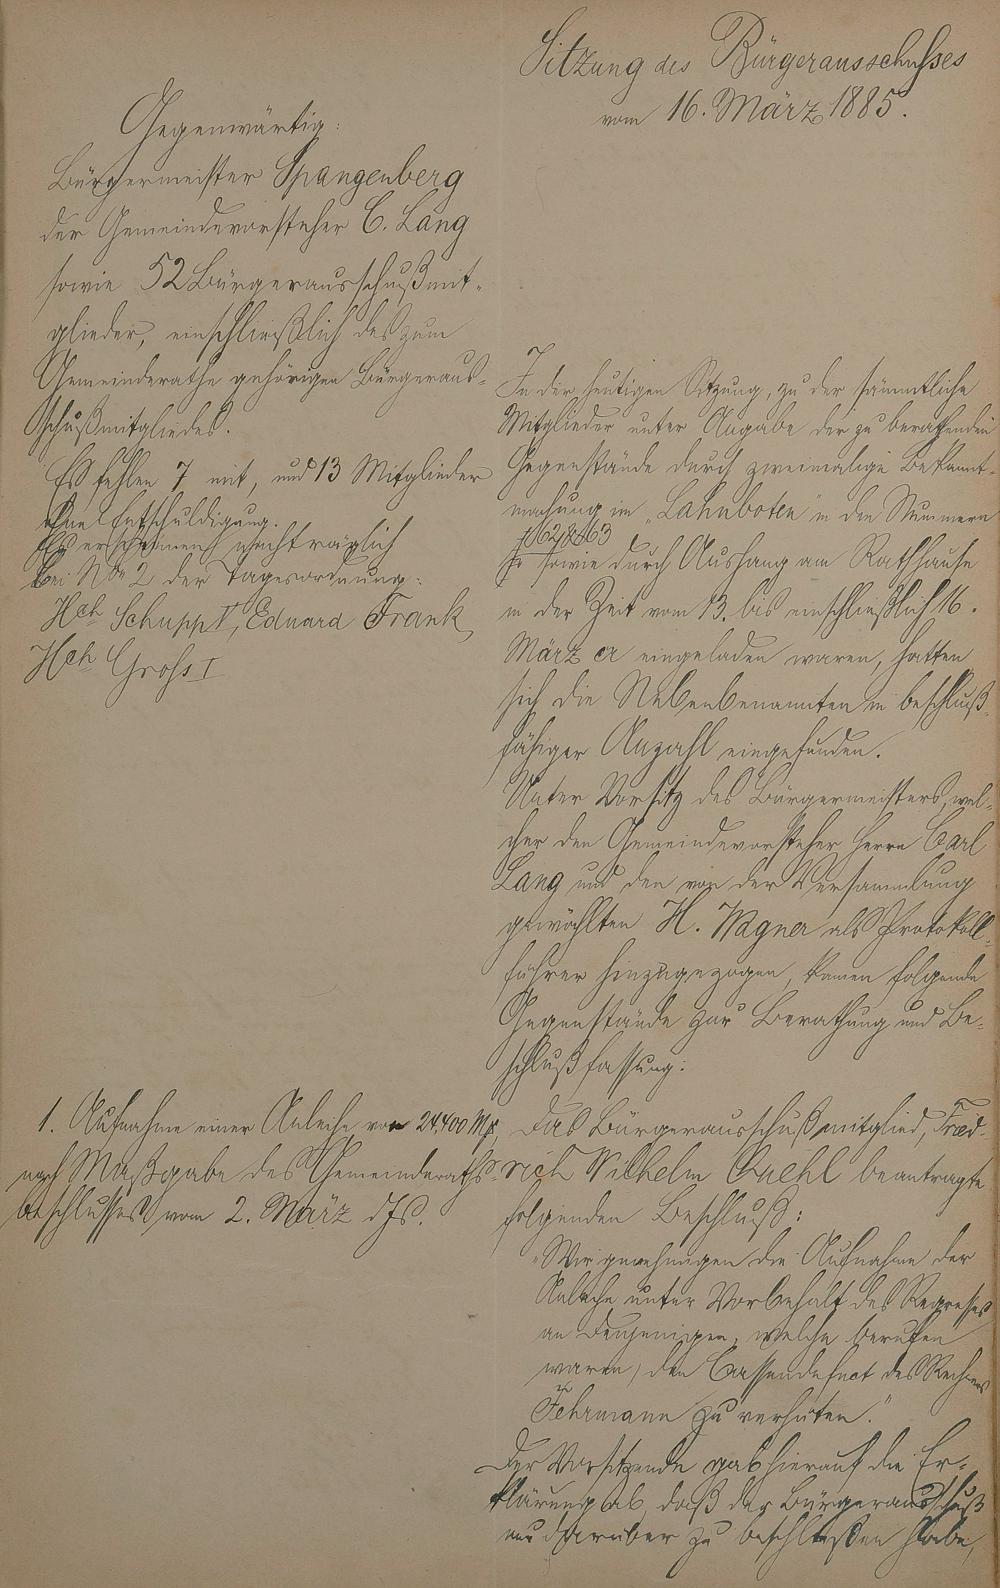 Sitzung des Bürgerausschusses
vom 16. März 1885.
Gegenwärtig:
Bürgermeister Spangenberg
der Gemeindevorsteher C. Lang
sowie 52 Bürgerausschußmit-
glieder, einschließlich des zum
Gemeinderathe gehörigen Bürgeraus-
schußmitgliedes.
Es fehlen 7 mit, und 13 Mitglieder
ohne Entschuldigung.
Es erscheinen nachträglich
bei No 2 der Tagesordnung:
Hch Schupp V, Eduard Frank
Hch Groß I
In der heutigen Sitzung, zu der sämmtliche
Mitglieder unter Angabe der zu berathenden
Gegenstände durch zweimalige Bekannt-
machung im „Lahnboten" in den Nummern
62 & 63
sowie durch Aushang am Rathhause
in der Zeit vom 13. bis einschließlich 16.
März cr eingeladen waren, hatten
sich die Nebenbenannten in beschluß-
fähiger Anzahl eingefunden.
Unter Vorsitz des Bürgermeisters, wel-
cher den Gemeindevorsteher Herrn Carl
Lang und den von der Versammlung
gewählten H. Wagner als Protokoll-
führer hinzugezogen, kamen folgende
Gegenstände zur Berathung und Be-
schlußfassung:
1. Aufnahme einer Anleihe von 24,400 Mk,
nach Maßgabe des Gemeinderaths-
beschlusses vom 2. März dJs.
Das Bürgerausschußmitglied, Fried-
rich Wilhelm Buehl beantragte
folgenden Beschluß:
„Wir genehmigen die Aufnahme der
Anleihe unter Vorbehalt des Regresses
an denjenigen, welche berufen
waren, den Cassendefect des Rechners
Fehrmann zu verhüten."
Der Vorsitzende gab hierauf die Er-
klärung ab, daß der Bürgerausschuß
nur darüber zu beschließen habe,